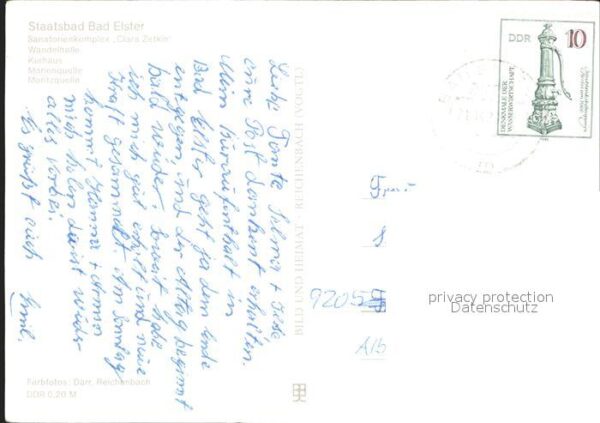 Staatsbad Bad Elster
Sanatorienkomplex „Clara Zetkin"
Wandelhalle
Kurhaus
Marienquelle
Moritzquelle
Liebe Tante Selma +
eure Post dankend erhalten.
Mein Kuraufenthalt in
Bad Elster geht ja dem Ende
entgegen und der Alltag beginnt
bald wieder.
ich mich gut erholt und neue
Kraft gesammelt. Am Sonntag
kommt Hanna +
mich holen dann ist wieder
alles vorbei.
Es grüßt euch
Farbfotos: Darr, Reichenbach
DDR 0,20 M
BILD UND HEIMAT · REICHENBACH (VOGTL)
DDR
10
DENKMALE DER
WASSERWIRTSCHAFT
9205
A1b
privacy protection
Datenschutz